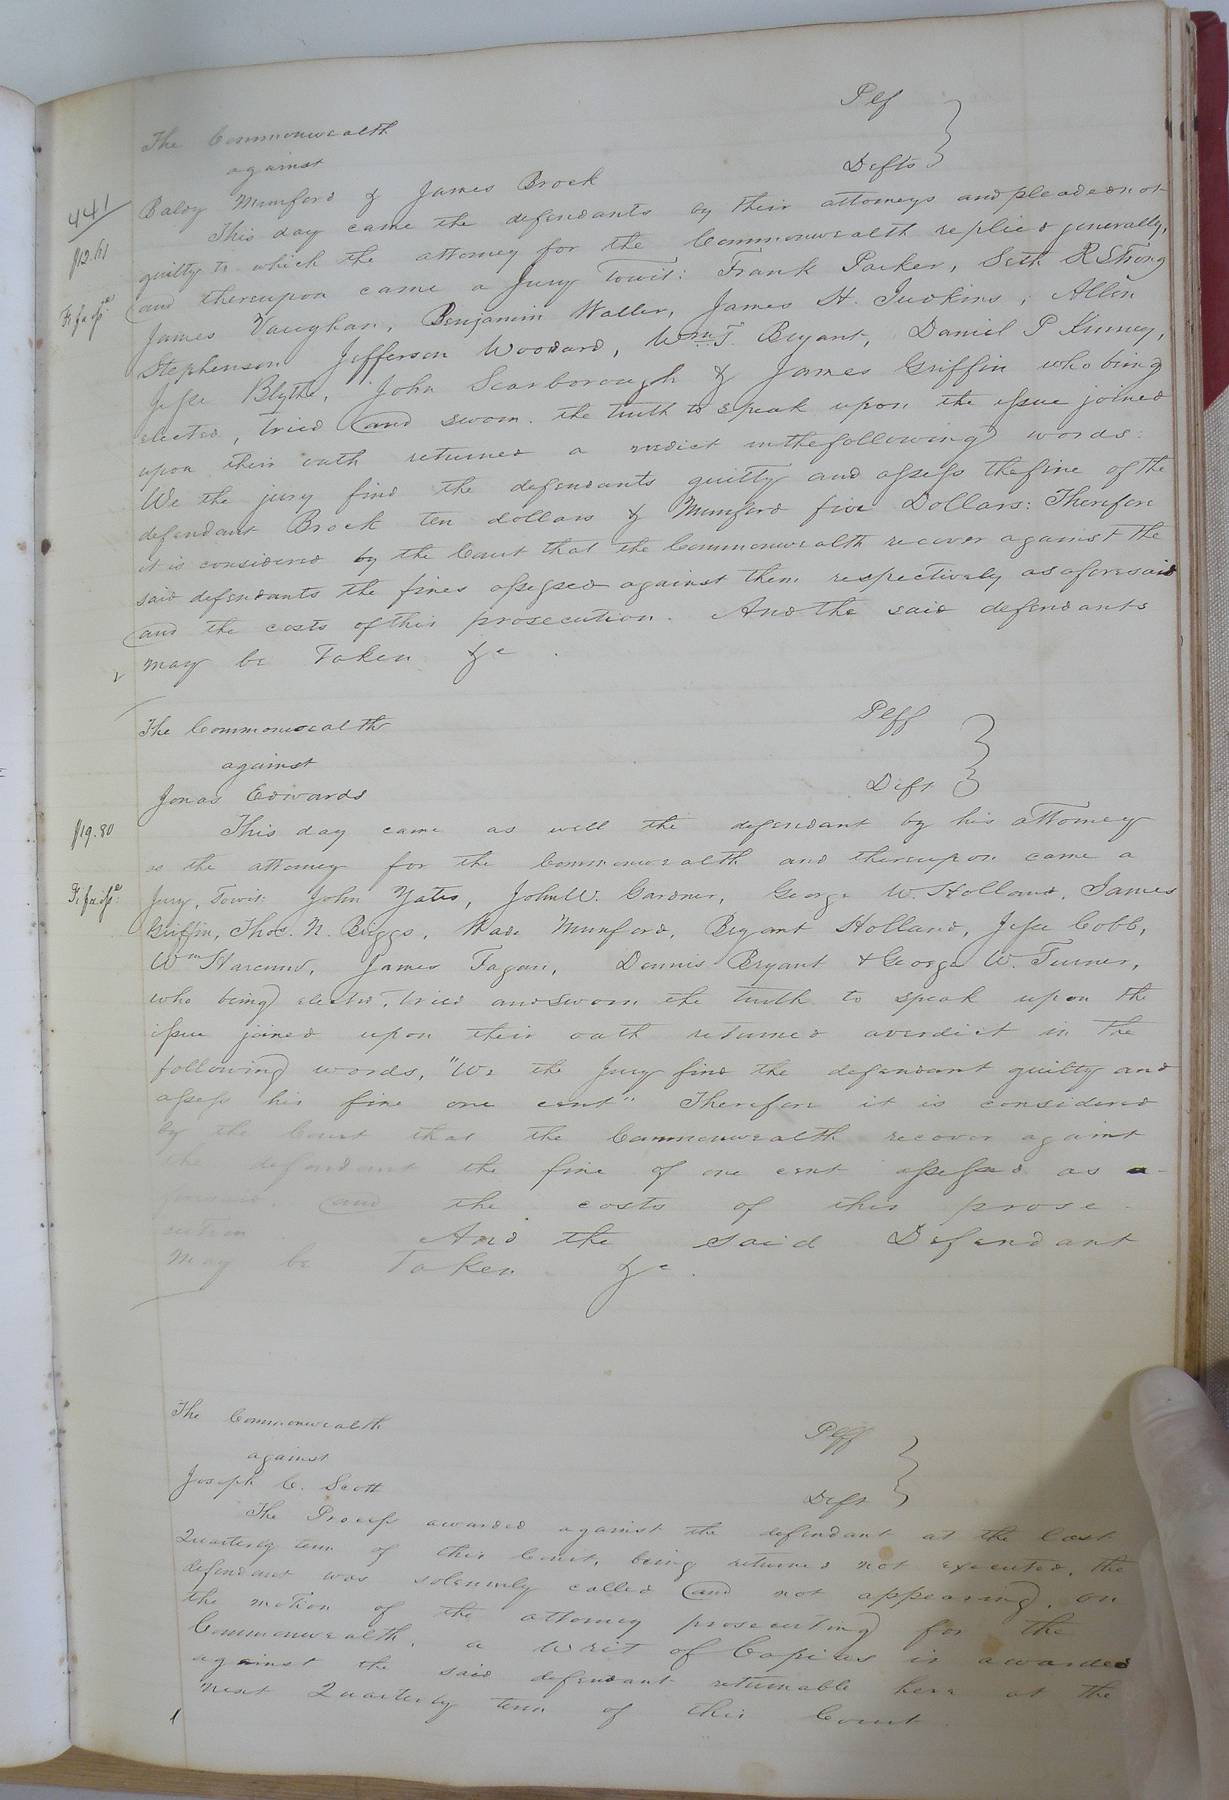 The Commonwealth Plf
against
Baldy Mumford & James Brock Defts
441
This day came the defendants by their attorneys and pleaded not
guilty to which the attorney for the Commonwealth replied generally,
and thereupon came a Jury Towit: Frank Parker, Seth R Strong
James Vaughan, Benjamin Waller, James H. Judkins, Allen
Stephenson Jefferson Woodard, Wm T. Bryant, Daniel P Kinney,
Jesse Blythe, John Scarborough & James Griffin who being
elected, tried and sworn the truth to speak upon the issue joined
upon their oath returned a verdict in the following words:
We the jury find the defendants guilty and assess the fine of the
defendant Brock ten dollars & Mumford five Dollars: Therefore
it is considered by the Court that the Commonwealth recover against the
said defendants the fines assessed against them respectively as aforesaid
and the costs of this prosecution. And the said defendants
may be Taken &c.
The Commonwealth Plff
against
Jonas Edwards Deft
$19.80
This day came as well the defendant by his attorney
as the attorney for the Commonwealth and thereupon came a
Jury, Towit: John Yates, John W. Gardner, George W. Holland, James
Griffin, Thos. N. Biggs, Wade Mumford, Bryant Holland, Jesse Cobb,
Wm James Fagan, Dennis Bryant & George W. Turner,
who being elected, tried and sworn the truth to speak upon the
issue joined upon their oath returned a verdict in the
following words, "We the Jury find the defendant guilty and
assess his fine one cent" Therefore it is considered
by the Court that the Commonwealth recover against
the defendant the fine of one cent assessed as a-
foresaid, and the costs of this prose-
cution And the said Defendant
may be Taken &c.
The Commonwealth Plff
against
Joseph C. Scott Deft
The Process awarded against the defendant at the last
Quarterly term of this Court, being returned not executed, the
defendant was solemnly called and not appearing, on
the motion of the attorney prosecuting for the
Commonwealth, a Writ of Capias is awarded
against the said defendant returnable here at the
next Quarterly term of this Court